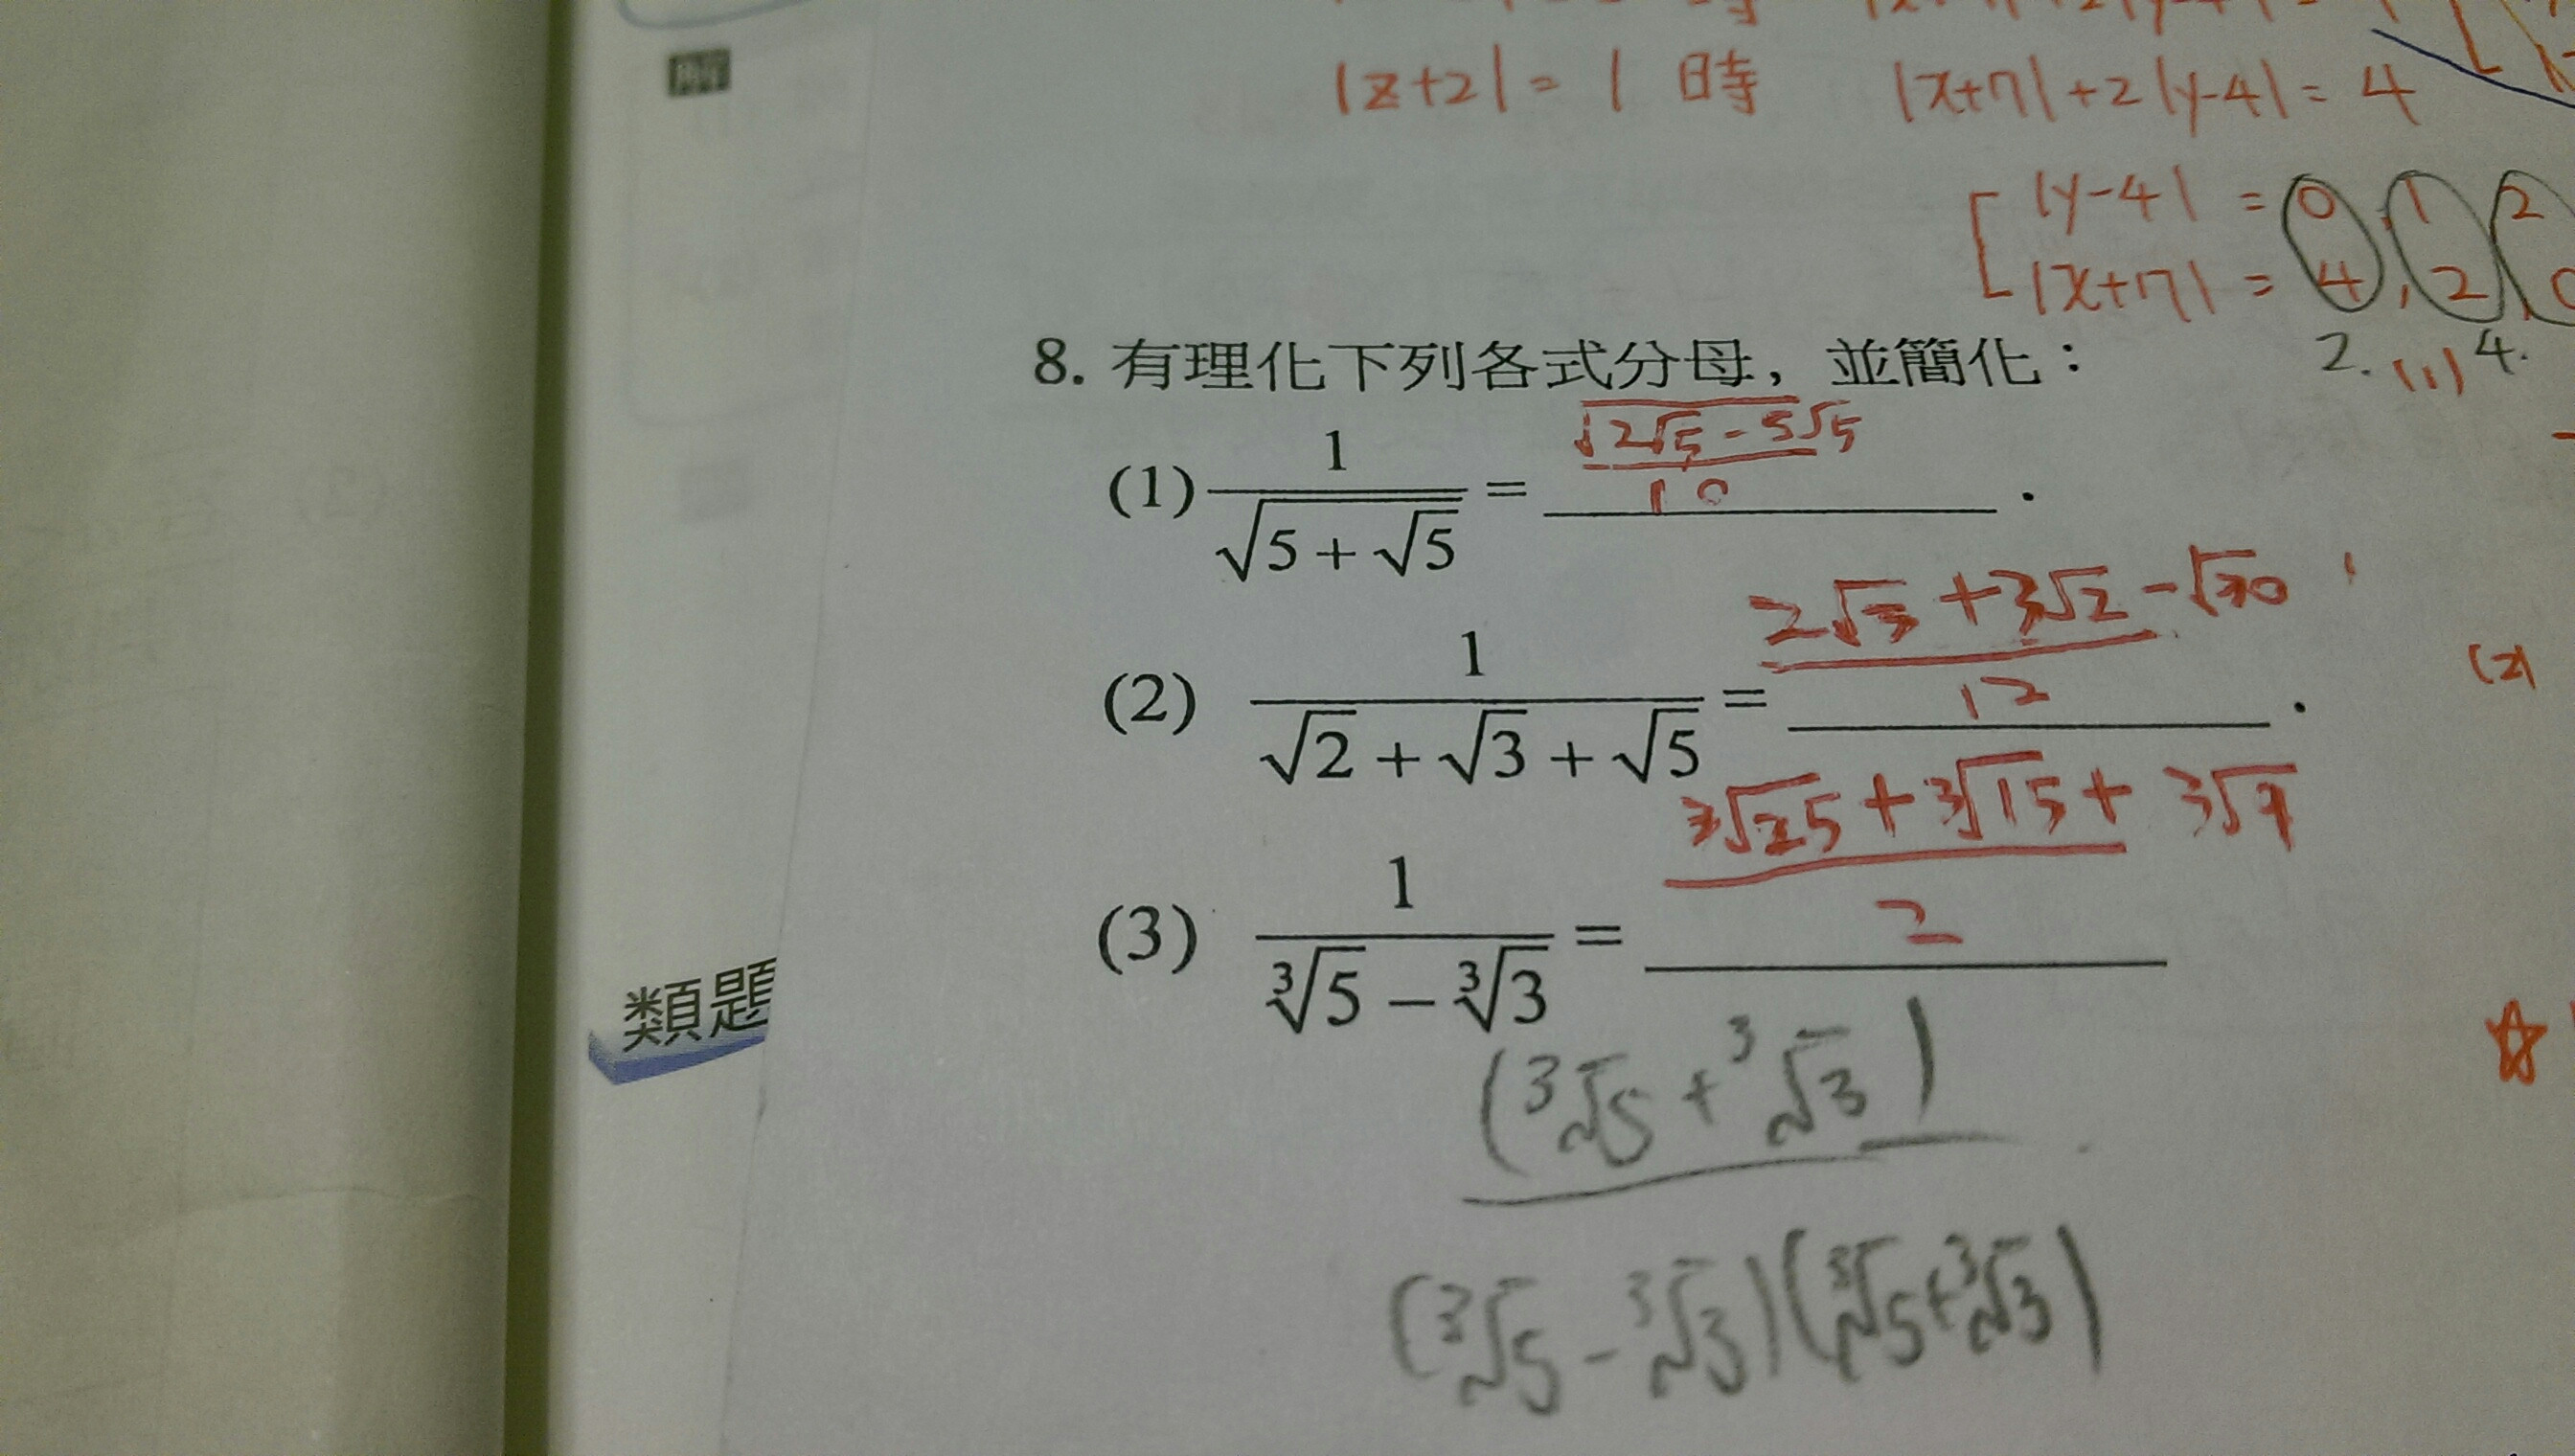 解
|z+2| = 1 時 |x+7|+2|y-4| = 4
|y-4| = 0, 1, 2
|x+7| = 4, 2, 0
8. 有理化下列各式分母，並簡化：
2. (1) 4.
(1) 1/√(5+√5) = √(2√5-5√5)/10 .
(2) 1/(√2+√3+√5) = (2√3+3√2-√30)/12 .
(2)
(3) 1/(³√5-³√3) = (³√25+³√15+³√9)/2
類題
(³√5+³√3)
(³√5-³√3)(³√5+³√3)